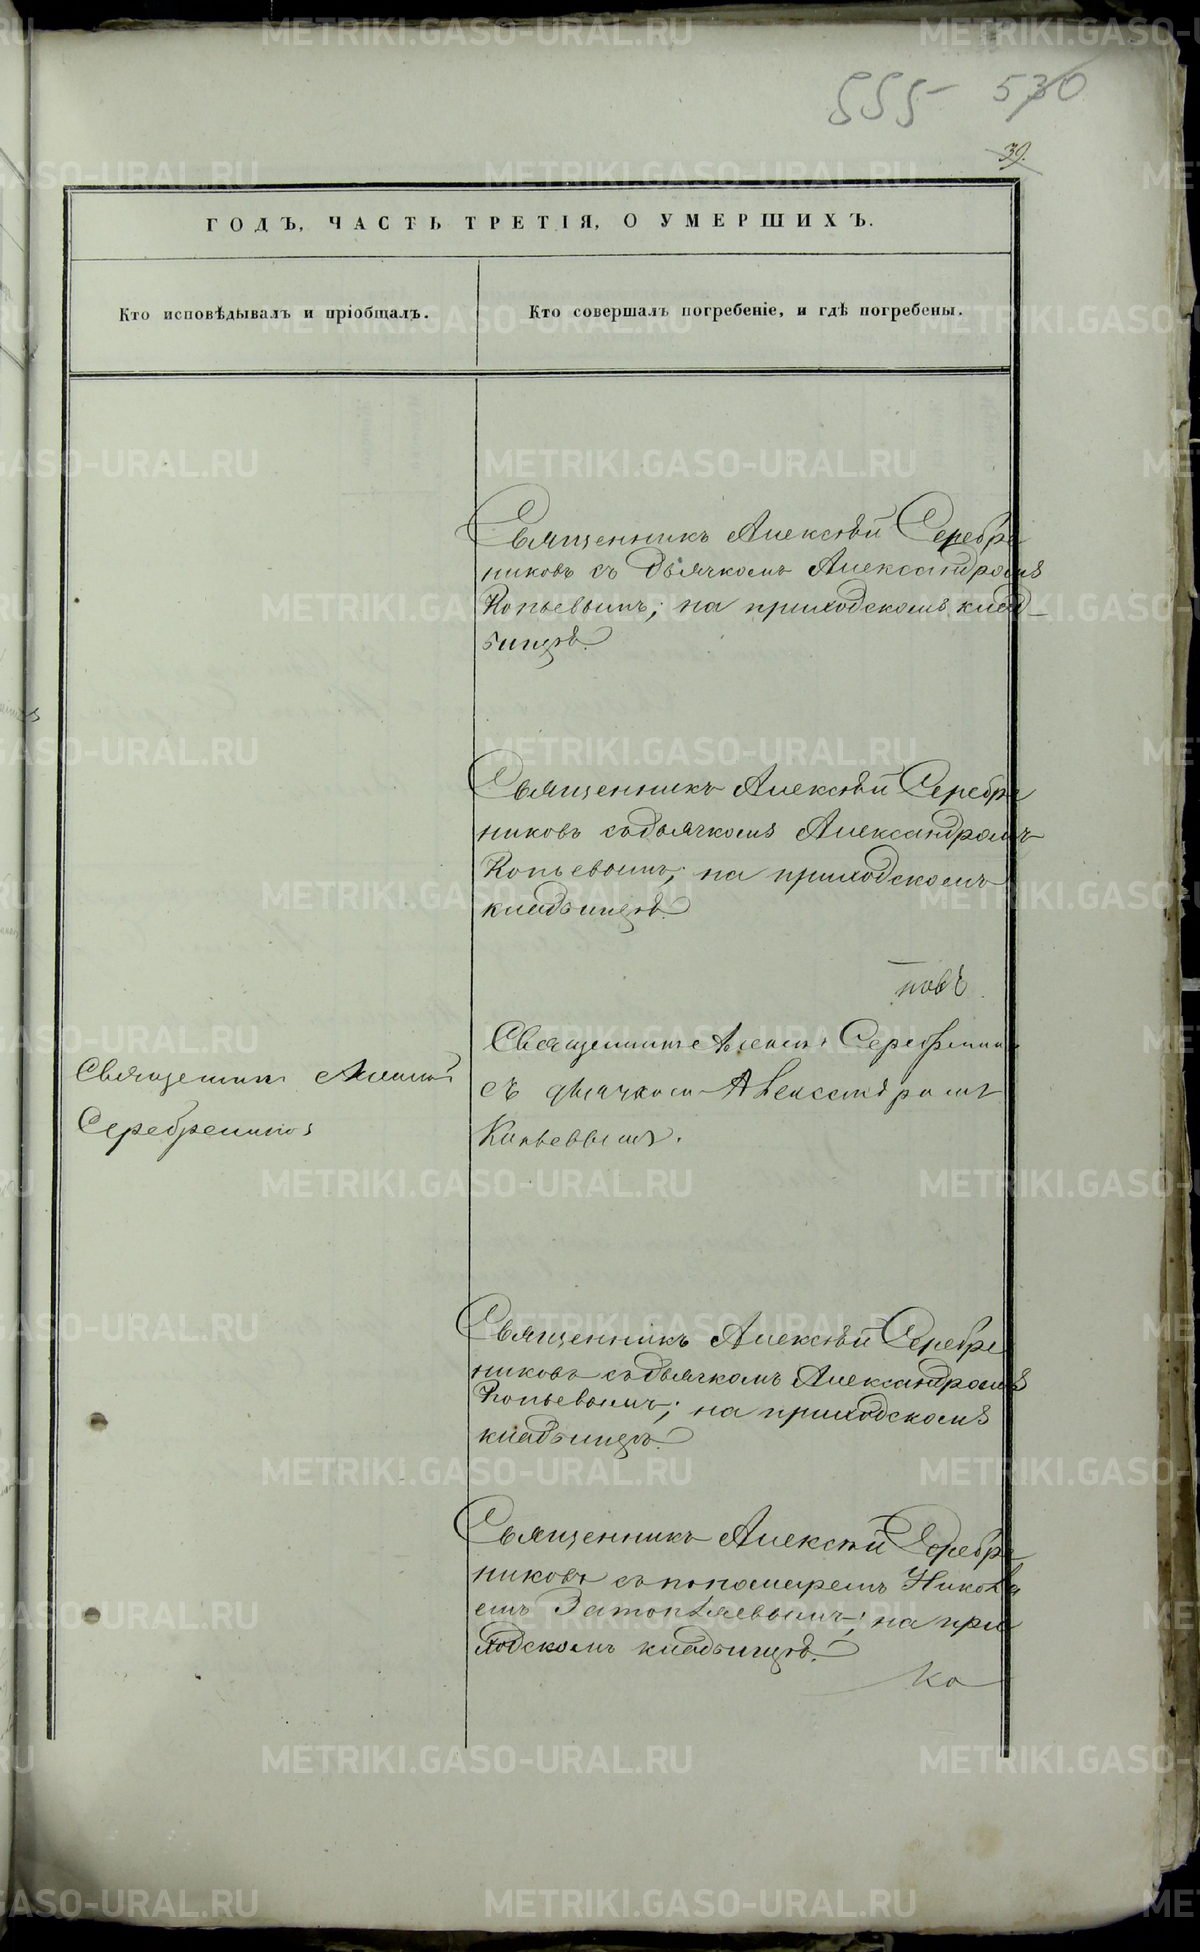 555 530
39.
ГОДЪ, ЧАСТЬ ТРЕТІЯ, О УМЕРШИХЪ.
Кто исповѣдывалъ и пріобщалъ.
Кто совершалъ погребеніе, и гдѣ погребены.
Священникъ Алексѣй Серебре
никовъ съ дьячкомъ Александромъ
Копьевымъ; на приходскомъ клад-
бищѣ.
Священникъ Алексѣй Серебре
никовъ съ дьячкомъ Александромъ
Копьевымъ; на приходскомъ
кладбищѣ.
Священникъ Алексѣй
Серебрениковъ
новъ
Священникъ Алексѣй Серебрени
съ дьячкомъ Александромъ
Копьевымъ.
Священникъ Алексѣй Серебре
никовъ съ дьячкомъ Александромъ
Копьевымъ; на приходскомъ
кладбищѣ.
Священникъ Алексѣй Серебре
никовъ съ пономаремъ Никола
емъ на при
ходскомъ кладбищѣ.
Ко
METRIKI.GASO-URAL.RU